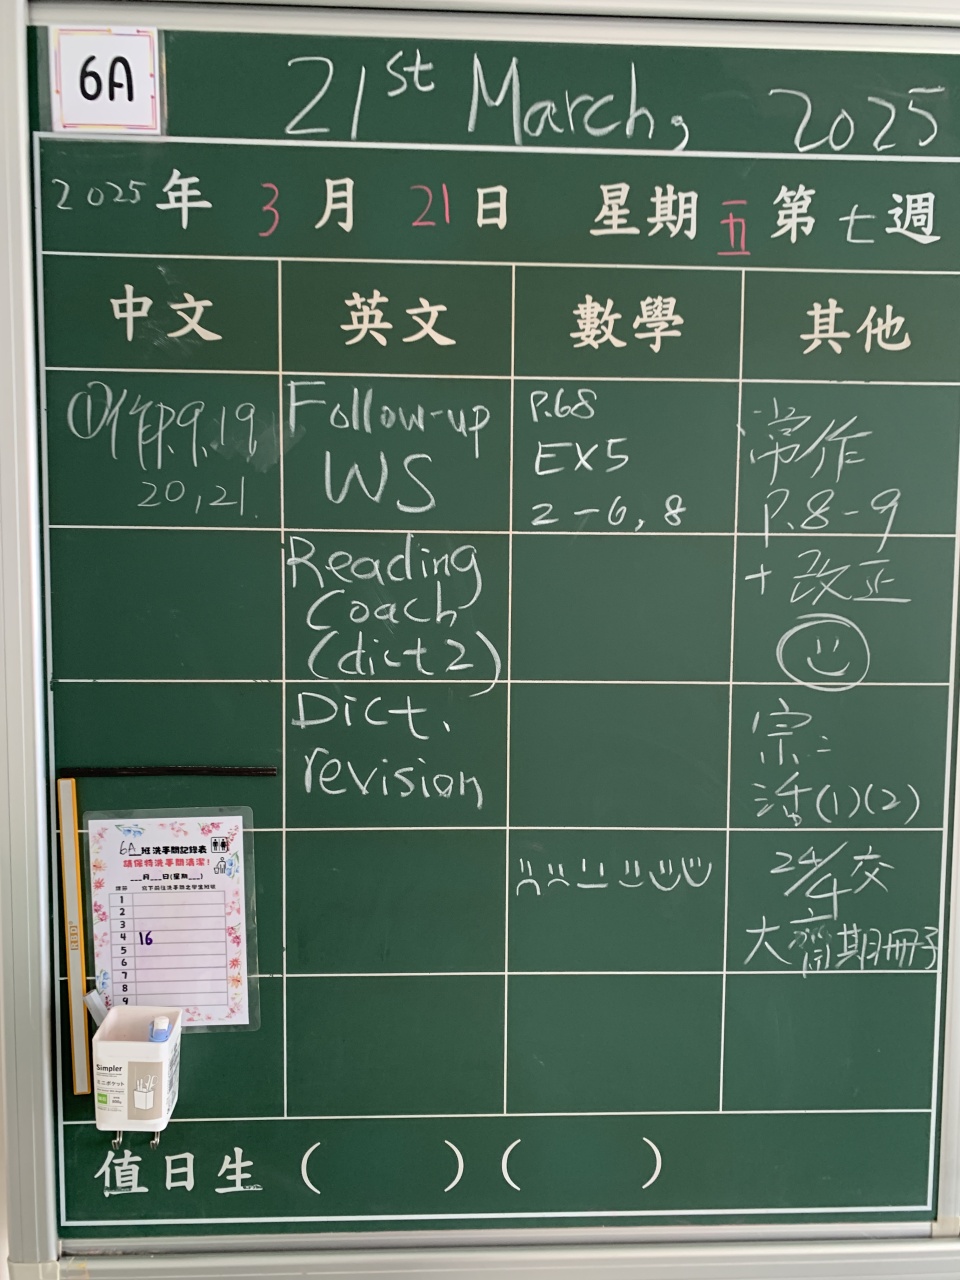 6A
21st March, 2025
2025年3月21日 星期五 第七週
中文 英文 數學 其他
①作P.9,19
20,21.
Follow-up
WS
P.68
EX5
2-6,8
常作
P.8-9
+改正
Reading
Coach
(dict 2)
Dict.
revision
宗:
活(1)(2)
24/4交
大齋期冊子
6A班洗手間記錄表
請保持洗手間清潔!
___月___日(星期___)
1
2
3
4 16
5
6
7
8
9
Simpler
ミニポケット
值日生( )( )